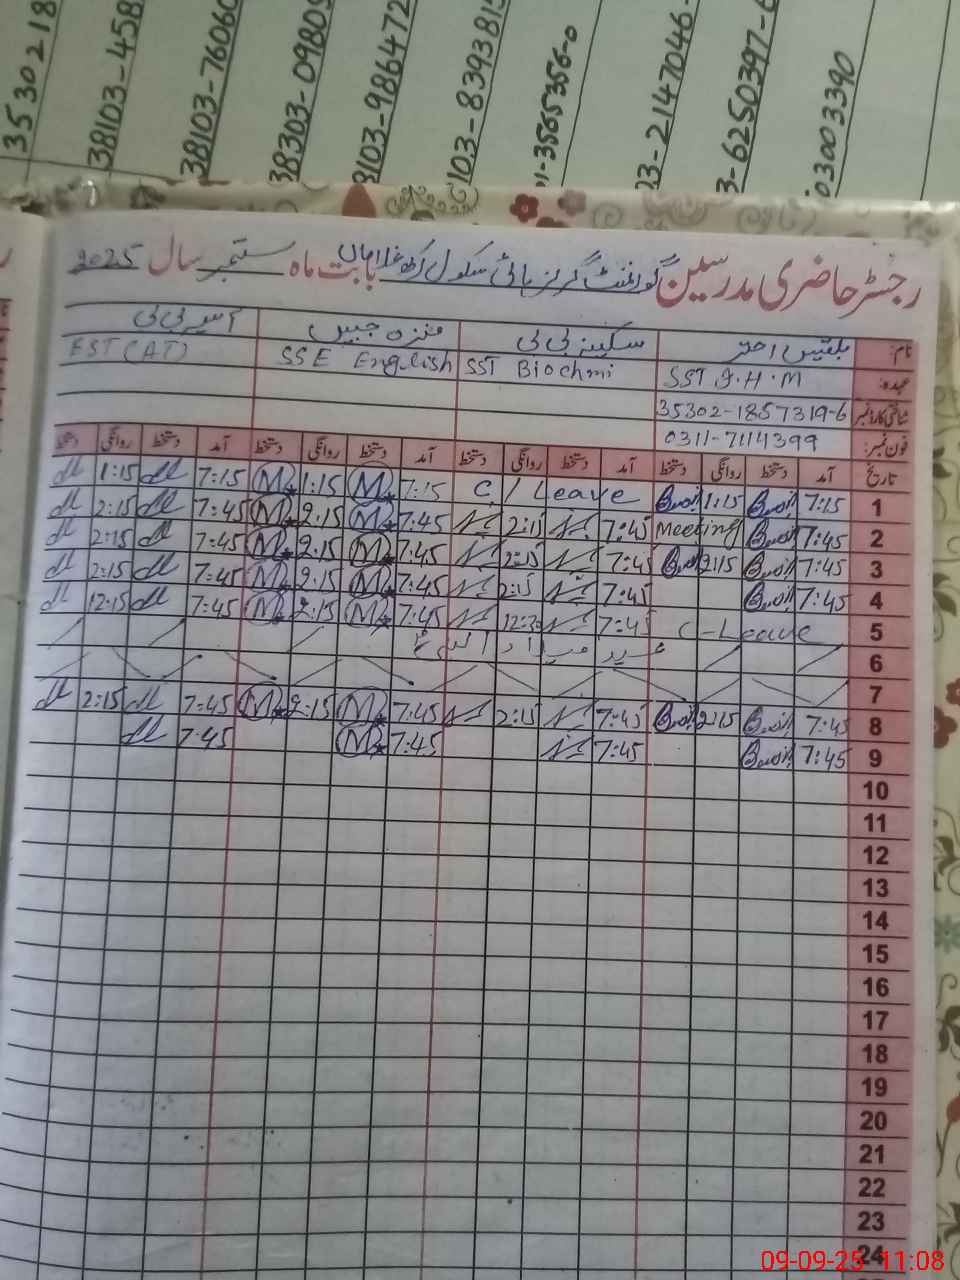 35302 18
38103-458
38103-76060
38303-09809
8103-986472
103-8393815
01-3565356-0
03-2147046-
3-6250397-6
0300 3390
رجسٹر حاضری مدرسین گورنمنٹ گرلز ہائی سکول بابت ماہ ستمبر سال 2025
نام: بلقیس اختر سکینہ بی بی منزہ جبیں آسیہ بی بی
عہدہ: SST I.H.M SST Biochmi SSE English EST (AT)
شناختی کارڈ نمبر 35302-1857319-6
فون نمبر: 0311-7114399
تاریخ آمد دستخط روانگی دستخط آمد دستخط روانگی دستخط آمد دستخط روانگی دستخط آمد دستخط روانگی دستخط
1 7:15 1:15 C/Leave 7:15 1:15 7:15 1:15
2 7:45 Meeting 7:45 2:15 7:45 2:15 7:45 2:15
3 7:45 2:15 7:45 2:15 7:45 2:15 7:45 2:15
4 7:45 7:45 2:15 7:45 2:15 7:45 2:15
5 C-Leave 7:45 7:45 2:15 7:45 12:15
6 عید میلاد النبی
7
8 7:45 2:15 7:45 2:15 7:45 2:15 7:45 2:15
9 7:45 7:45 7:45 7:45
10
11
12
13
14
15
16
17
18
19
20
21
22
23
24
09-09-25 11:08